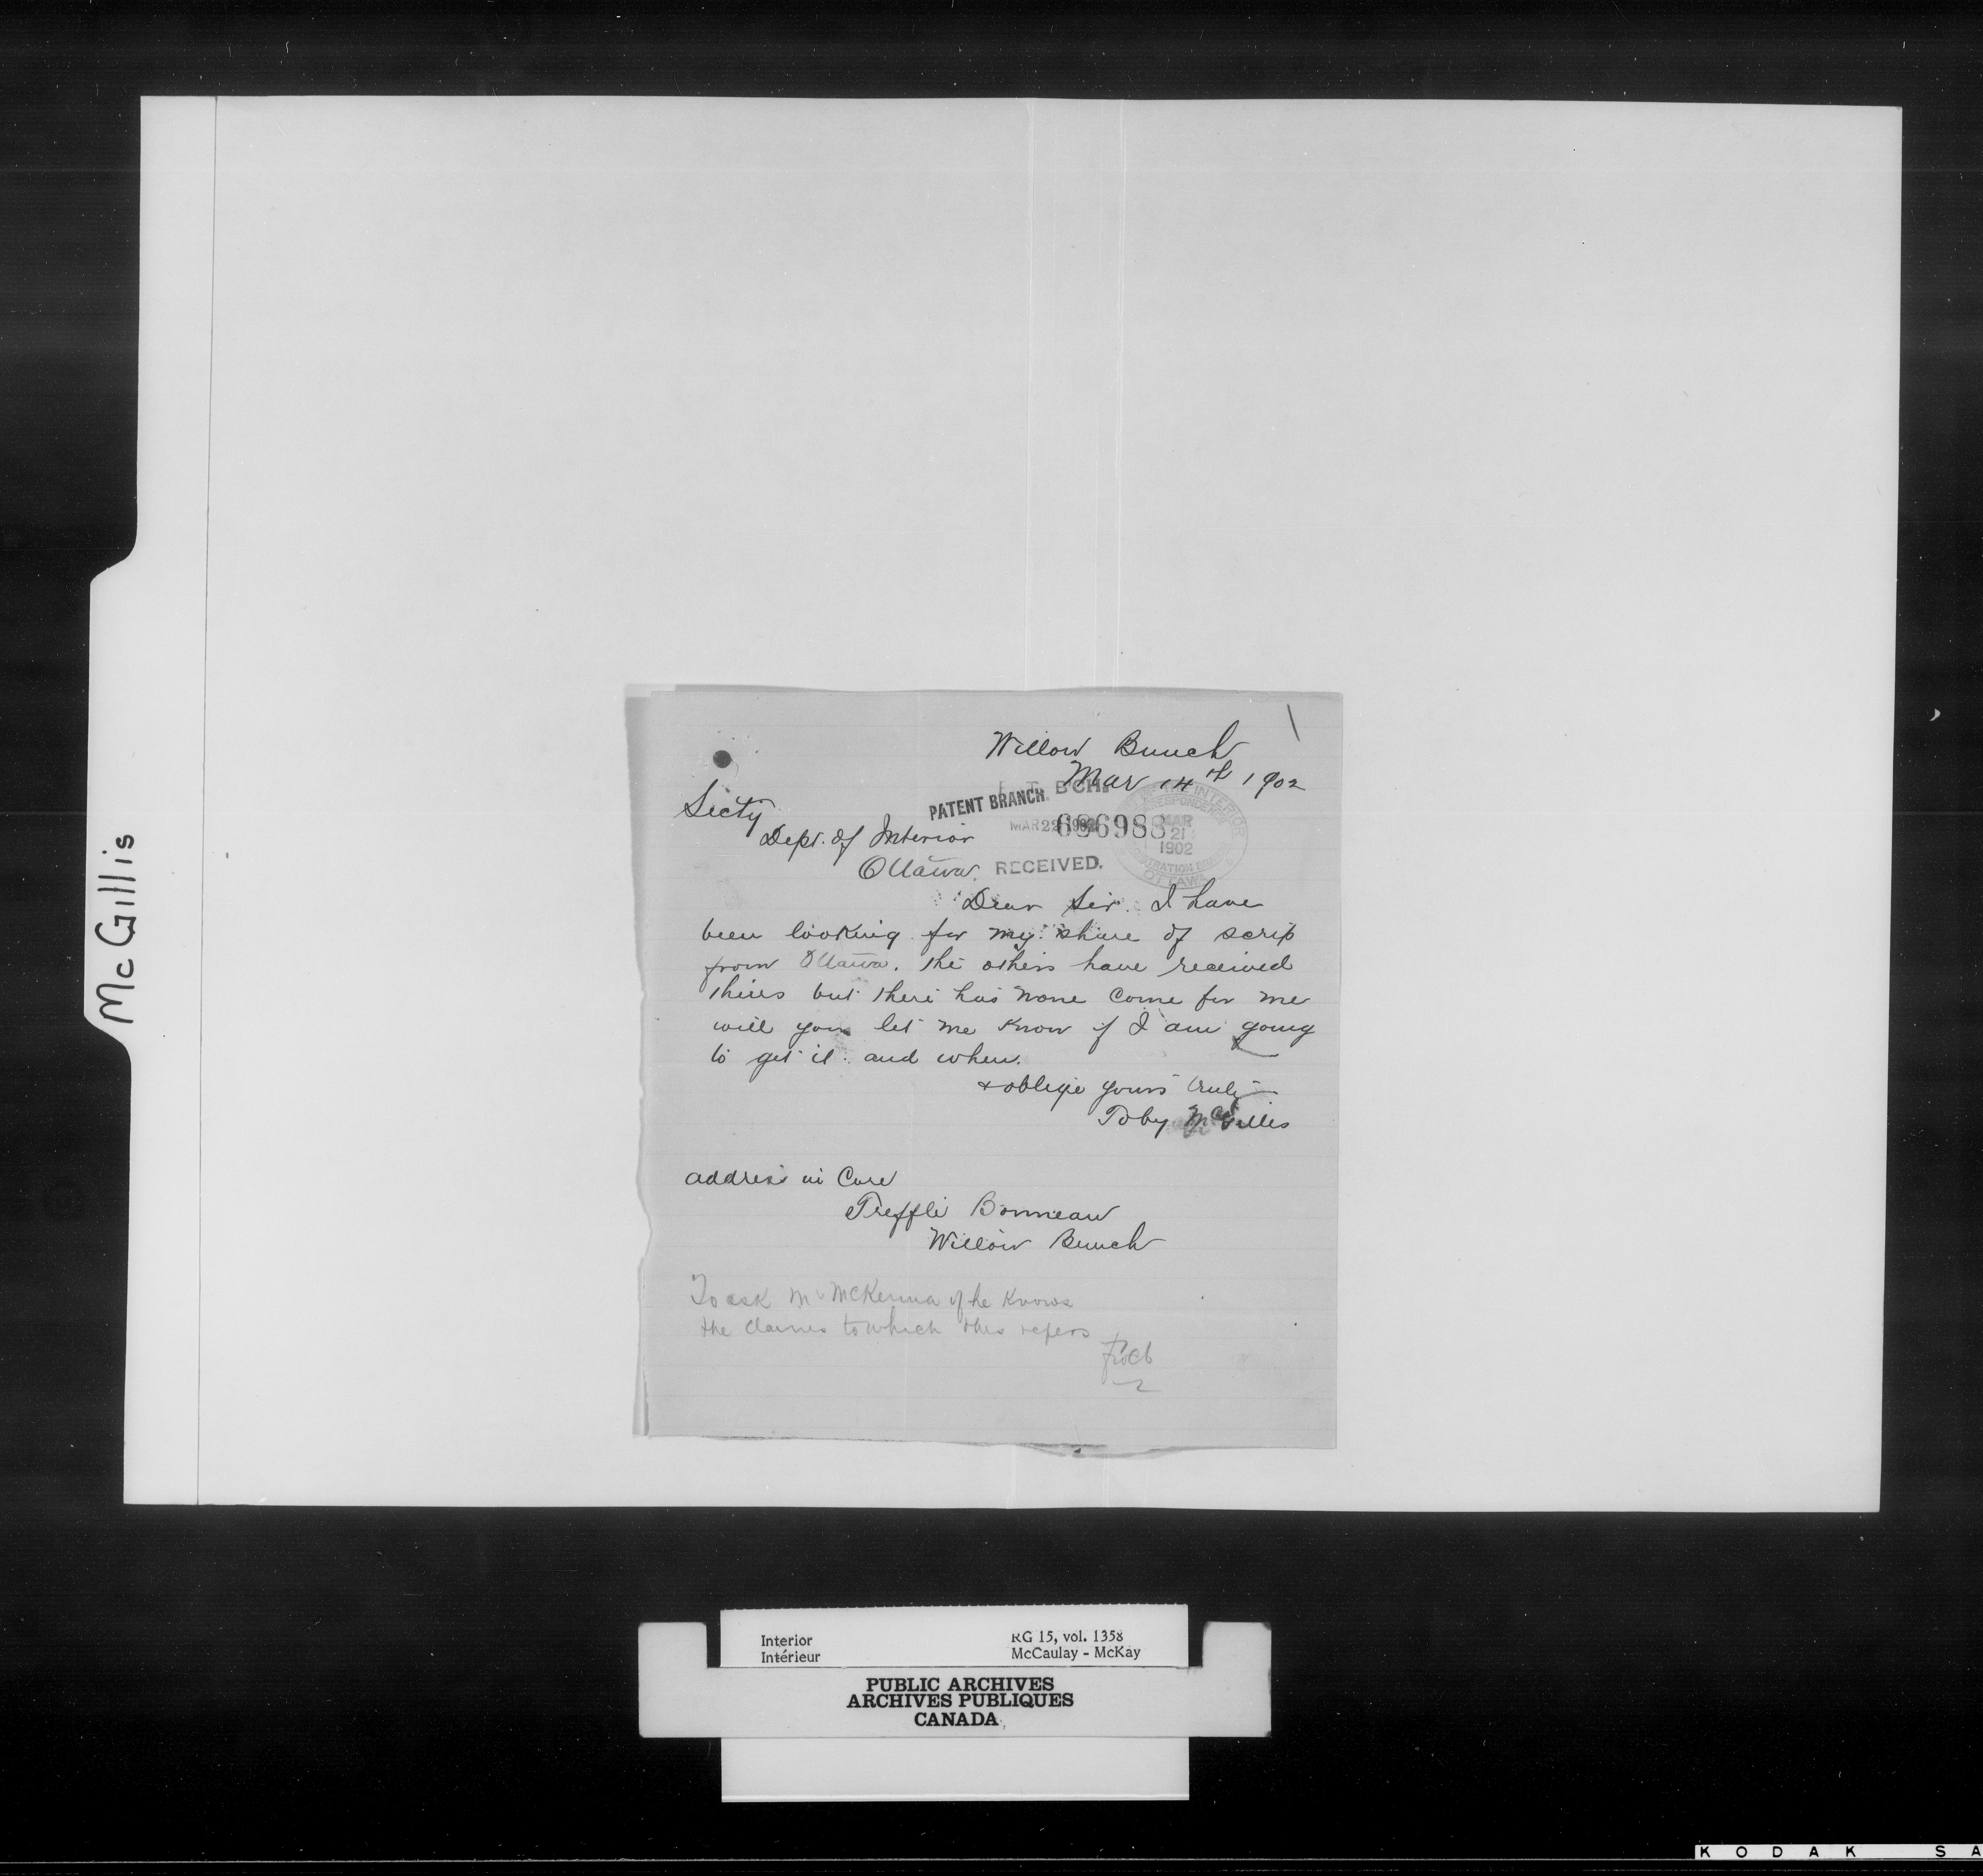 McGillis
Willow Bunch
Mar 14th 1902
Secty
PATENT BRANCH.
BCH.
Dept. of Interior
MAR 22 1902
686988
MAR
21
1902
OTTAWA
Ottawa.
RECEIVED.
Dear Sir. I have
been looking for my share of scrip
from Ottawa. the others have received
theirs but there has none come for me
will you let me know if I am going
to get it and when.
& oblige yours truly
Toby McGillis
address in Care
Treffle Bonneau
Willow Bunch
To ask Mr McKenna if he knows
the claims to which this refers
Interior
Intérieur
RG 15, vol. 1358
McCaulay - McKay
PUBLIC ARCHIVES
ARCHIVES PUBLIQUES
CANADA
KODAK SA